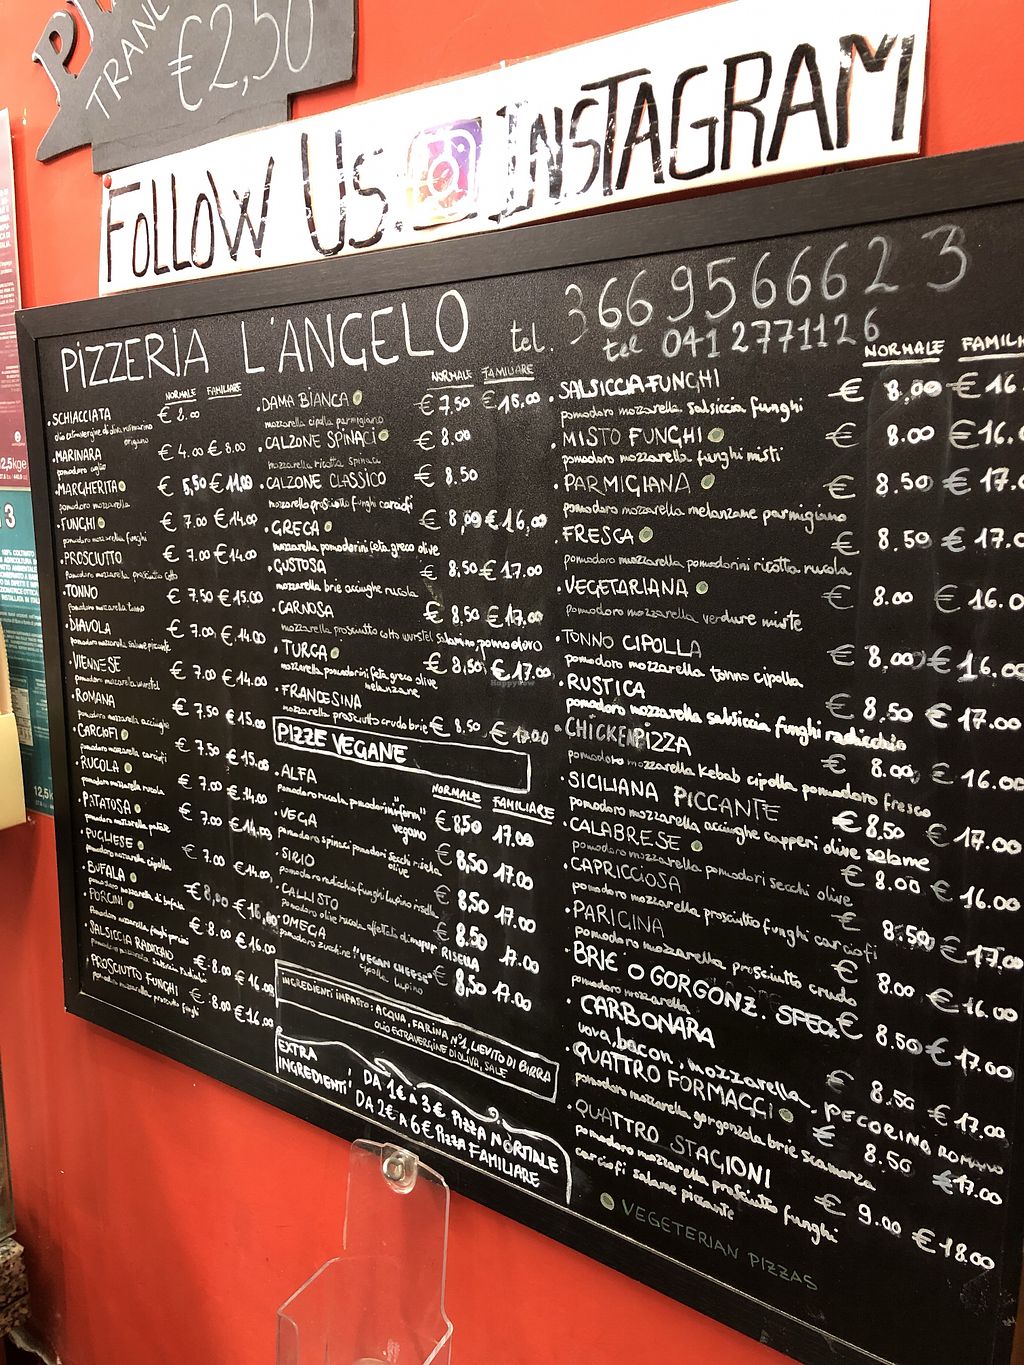 TRANC
€2,50
FOLLOW US INSTAGRAM
PIZZERIA L'ANGELO
tel. 3669566623
tel 0412771126
NORMALE FAMILIARE
.SCHIACCIATA € 8.00
rosmarino
origano
.MARINARA € 4.00 € 8.00
pomodoro aglio
.MARGHERITA € 5,50 € 11,00
pomodoro mozzarella
.FUNGHI € 7.00 € 14.00
pomodoro mozzarella funghi
.PROSCIUTTO € 7.00 € 14.00
pomodoro mozzarella prosciutto cotto
.TONNO € 7.50 € 15.00
pomodoro mozzarella tonno
.DIAVOLA € 7.00 € 14.00
pomodoro mozzarella salame piccante
.VIENNESE € 7.00 € 14.00
pomodoro mozzarella wurstel
.ROMANA € 7.50 € 15.00
pomodoro mozzarella acciughe
.CARCIOFI € 7.50 € 15.00
pomodoro mozzarella carciofi
.RUCOLA € 7.00 € 14.00
pomodoro mozzarella rucola
.PATATOSA € 7.00 € 14,00
pomodoro mozzarella patate
.PUGLIESE € 7.00 € 14,00
pomodoro mozzarella cipolla
.BUFALA € 8,00 € 16,00
pomodoro mozzarella di bufala
.PORCINI € 8.00 € 16.00
pomodoro mozzarella funghi porcini
.SALSICCIA RADICCHIO € 8.00 € 16.00
pomodoro mozzarella salsiccia radicchio
.PROSCIUTTO FUNGHI € 8.00 € 16.00
pomodoro mozzarella prosciutto funghi
NORMALE FAMILIARE
.DAMA BIANCA € 7,50 € 15,00
mozzarella cipolla parmigiano
.CALZONE SPINACI € 8.00
mozzarella ricotta spinaci
.CALZONE CLASSICO € 8.50
mozzarella prosciutto funghi carciofi
.GRECA € 8,00 € 16,00
mozzarella pomodorini feta greco olive
.GUSTOSA € 8,50 € 17.00
mozzarella brie acciughe rucola
.CARNOSA € 8,50 € 17,00
mozzarella prosciutto cotto wurstel salamino, pomodoro
.TURCA € 8,50 € 17,00
mozzarella pomodorini feta greco olive
melanzane
.FRANCESINA
mozzarella prosciutto crudo brie € 8,50 € 17.00
PIZZE VEGANE
NORMALE FAMILIARE
.ALFA € 8,50 17.00
pomodoro rucola pomodorini "inform"
vegano
.VEGA € 8,50 17.00
pomodoro spinaci pomodori secchi risella
olive
.SIRIO € 8,50 17.00
pomodoro radicchio funghi lupino risella
.CALLISTO € 8.50 17.00
pomodoro olive rucola affettato di mopur RISELLA
.OMEGA € 8,50 17.00
pomodoro zucchine "VEGAN CHEESE"
cipolla lupino
INGREDIENTI IMPASTO: ACQUA, FARINA N°1, LIEVITO DI BIRRA
OLIO EXTRAVERGINE DI OLIVA, SALE
EXTRA
INGREDIENTI
DA 1€ A 3€ PIZZA NORMALE
DA 2€ A 6€ PIZZA FAMILIARE
NORMALE FAMILI
.SALSICCIA-FUNGHI € 8.00 € 16.
pomodoro mozzarella salsiccia funghi
.MISTO FUNGHI € 8.00 € 16.
pomodoro mozzarella funghi misti
.PARMIGIANA € 8.50 € 17.
pomodoro mozzarella melanzane parmigiano
.FRESCA € 8.50 € 17.0
pomodoro mozzarella pomodorini ricotta rucola
.VEGETARIANA € 8.00 € 16.0
pomodoro mozzarella verdure miste
.TONNO CIPOLLA € 8,00 € 16.00
pomodoro mozzarella tonno cipolla
.RUSTICA € 8.50 € 17.00
pomodoro mozzarella salsiccia funghi radicchio
.CHICKEN PIZZA € 8.00 € 16.00
pomodoro mozzarella Kebab cipolla pomodoro fresco
.SICILIANA PICCANTE € 8.50 € 17.00
pomodoro mozzarella acciughe capperi olive salame
.CALABRESE € 8.00 € 16.00
pomodoro mozzarella pomodori secchi olive
.CAPRICCIOSA € 8.50 € 17.00
pomodoro mozzarella prosciutto funghi carciofi
.PARIGINA € 8.00 € 16.00
pomodoro mozzarella prosciutto crudo
.BRIE O GORGONZ. SPECK € 8.50 € 17.00
pomodoro mozzarella
.CARBONARA € 8.50 € 17.00
uova, bacon, mozzarella, PECORINO ROMANO
.QUATTRO FORMAGGI € 8.50 € 17.00
pomodoro mozzarella gorgonzola brie scamorza
.QUATTRO STAGIONI € 9.00 € 18.00
pomodoro mozzarella prosciutto funghi
carciofi salame piccante
VEGETERIAN PIZZAS